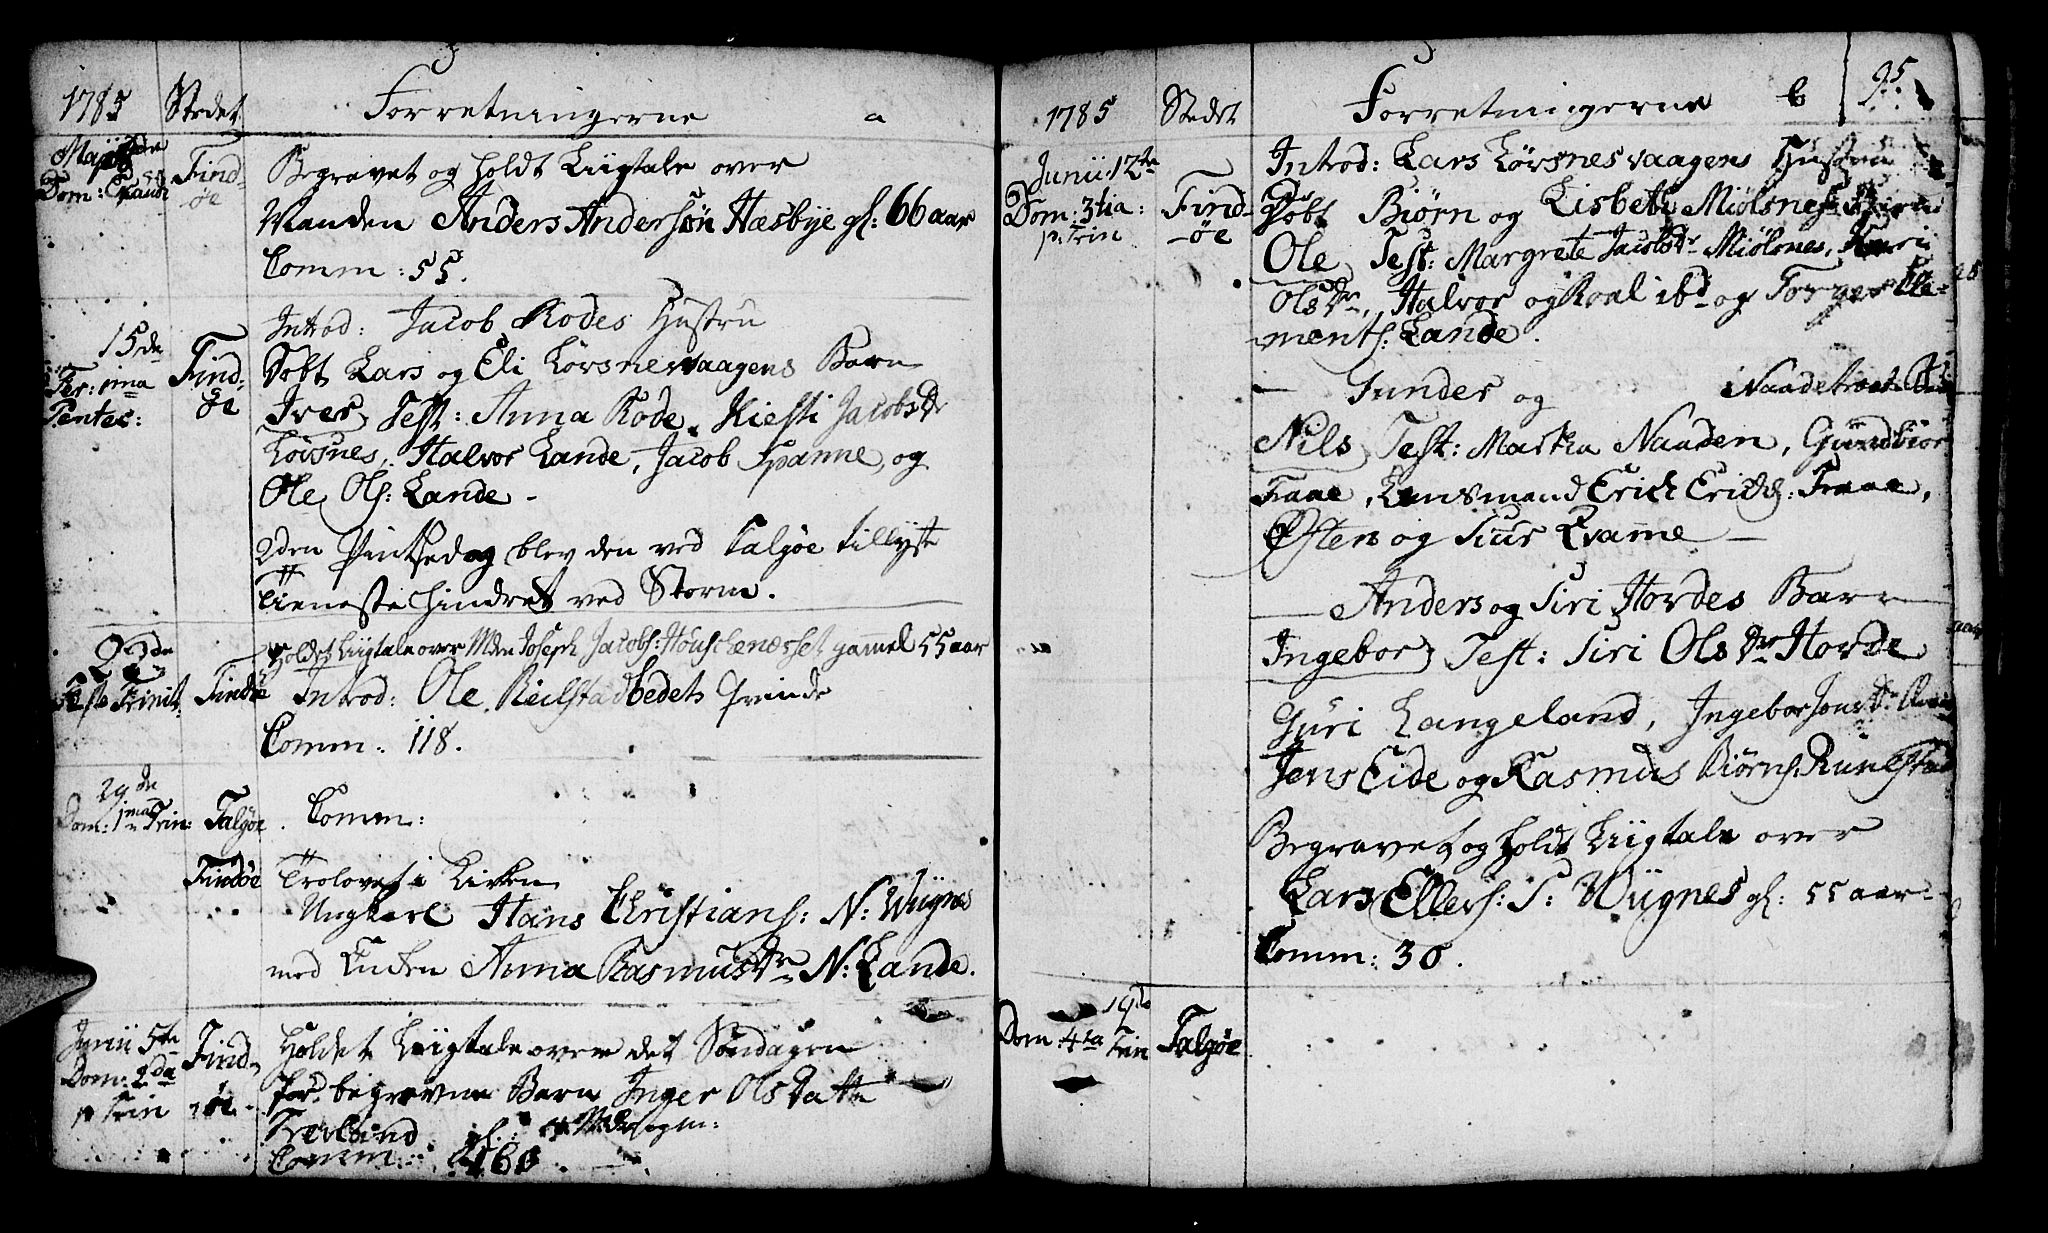 1785 Stedet Forretningerne a
Maji 8de Find-
Dom: Exaudi øe
Begravet og holdt Liigtale over
Manden Anders Andersøn Hæsbÿe gl: 66 aar
Comm: 55.
Introd: Jacob Rodes Hustru
15de Find-
Fer: 1ma øe
Pentec:
Døbt Lars og Eli Løvsnesvaagens Barn
Iver, Test: Anna Rode, Kiesti Jacobsdr
Løvsnes, Halvor Lande, Jacob Spanne, og
Ole Ols: Lande -
2den Pintsedag blev den ved Talgøe tillyste
Tieneste hindret ved Storm.
22de
Festo Trinit: Findøe
Holdet Liigtale over Mden Joseph Jacobs: gammel 55 aar
Introd: Ole Qvinde
Comm: 118.
29de
Dom: 1ma Trin: Talgøe
Comm:
Findøe Trolovet i Kirken
Ungkarl Hans Christians: N: Wiignes
med Enken Anna Rasmusdr N: Lande.
Junii 5te Find-
Dom: 2da øe
p Trin
Holdet Liigtale over det Søndagen
for begravne Barn Inger Olsdatter
gl:
Comm:
1785 Stedet Forretningerne b 95
Junii 12te Find-
Dom: 3tia: -øe
p. Trin
Introd: Lars Løvsnesvaagens Hustru
Døbt Biørn og Lisbeth Miølsnes Barn
Ole, Test: Margrete Jacobsdr Miølsnes,
Olsdr, Halvor og Roal ibd og Cle-
ments: Lande.
- Gunder og
Nils Test: Martha Naaden, Gundbior
Faae, Lensmand Erich Erichs: Faae,
Østen og Siur Qvame -
- Anders og Siri Hordes Barn
Ingebor, Test: Siri Olsdr Horde
Guri Langeland, Ingebor Jonsdr
Jens Eide og Rasmus Biørns:
Begravet og holdt Liigtale over
Lars Ellers: S: Wiignes gl: 55 aar -
Comm: 30.
19de
Dom: 4ta Trin Talgøe